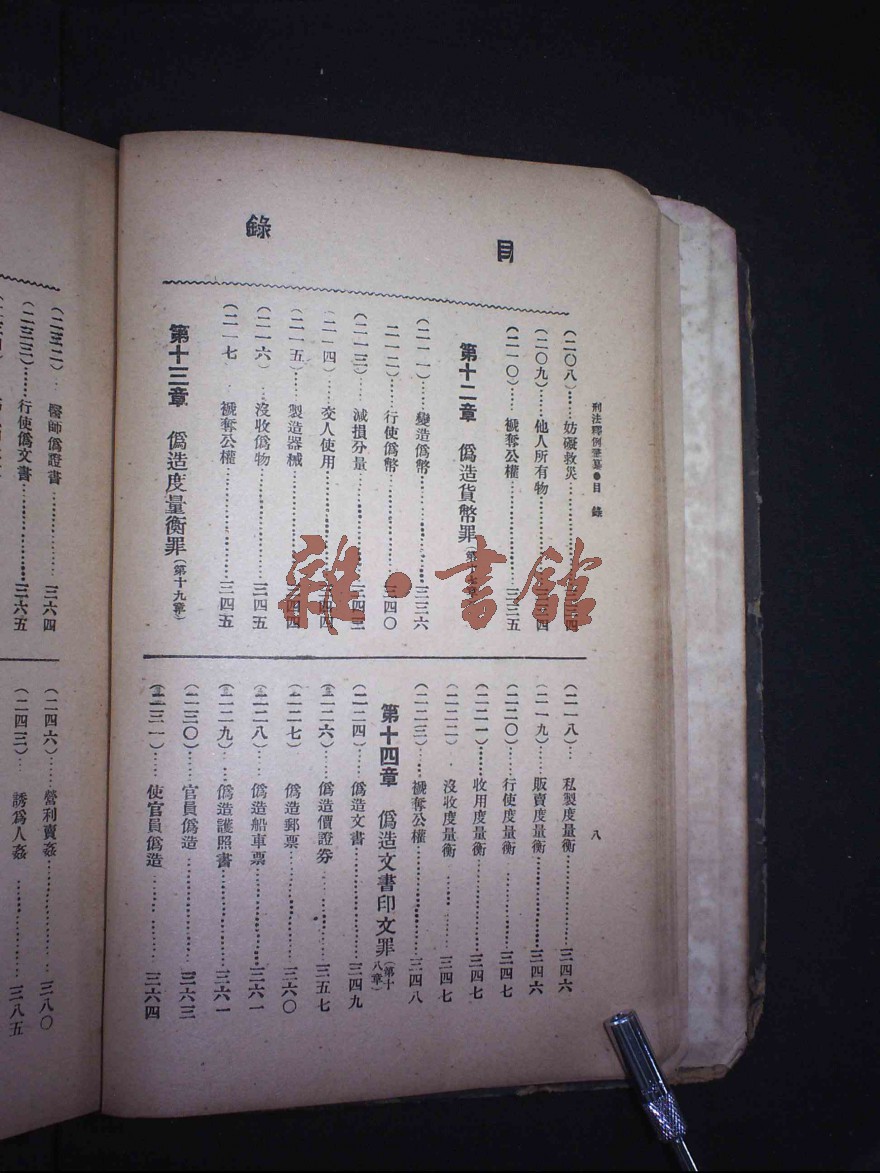 目錄
刑法釋例彙纂●目錄
(二〇八)……妨礙救災……三三四
(二〇九)……他人所有物……三三四
(二一〇)……褫奪公權……三三五
第十二章 僞造貨幣罪
(二一一)……變造僞幣……三三六
(二一二)……行使僞幣……三四〇
(二一三)……減損分量……三四三
(二一四)……交人使用……三四四
(二一五)……製造器械……三四四
(二一六)……沒收僞物……三四五
(二一七)……褫奪公權……三四五
第十三章 僞造度量衡罪(第十九章)
(二一八)……私製度量衡……三四六
(二一九)……販賣度量衡……三四六
(二二〇)……行使度量衡……三四七
(二二一)……收用度量衡……三四七
(二二二)……沒收度量衡……三四七
(二二三)……褫奪公權……三四八
第十四章 僞造文書印文罪(第十八章)
(二二四)……僞造文書……三四九
(二二六)……僞造價證券……三五七
(二二七)……僞造郵票……三六〇
(二二八)……僞造船車票……三六一
(二二九)……僞造護照書……三六一
(二三〇)……官員僞造……三六三
(二三一)……使官員僞造……三六四
八
(二三二)……醫師僞證書……三六四
(二三三)……行使僞文書……三六五
(二四六)……營利賣姦……三八〇
(二四三)……誘爲人姦……三八五
雜·書館